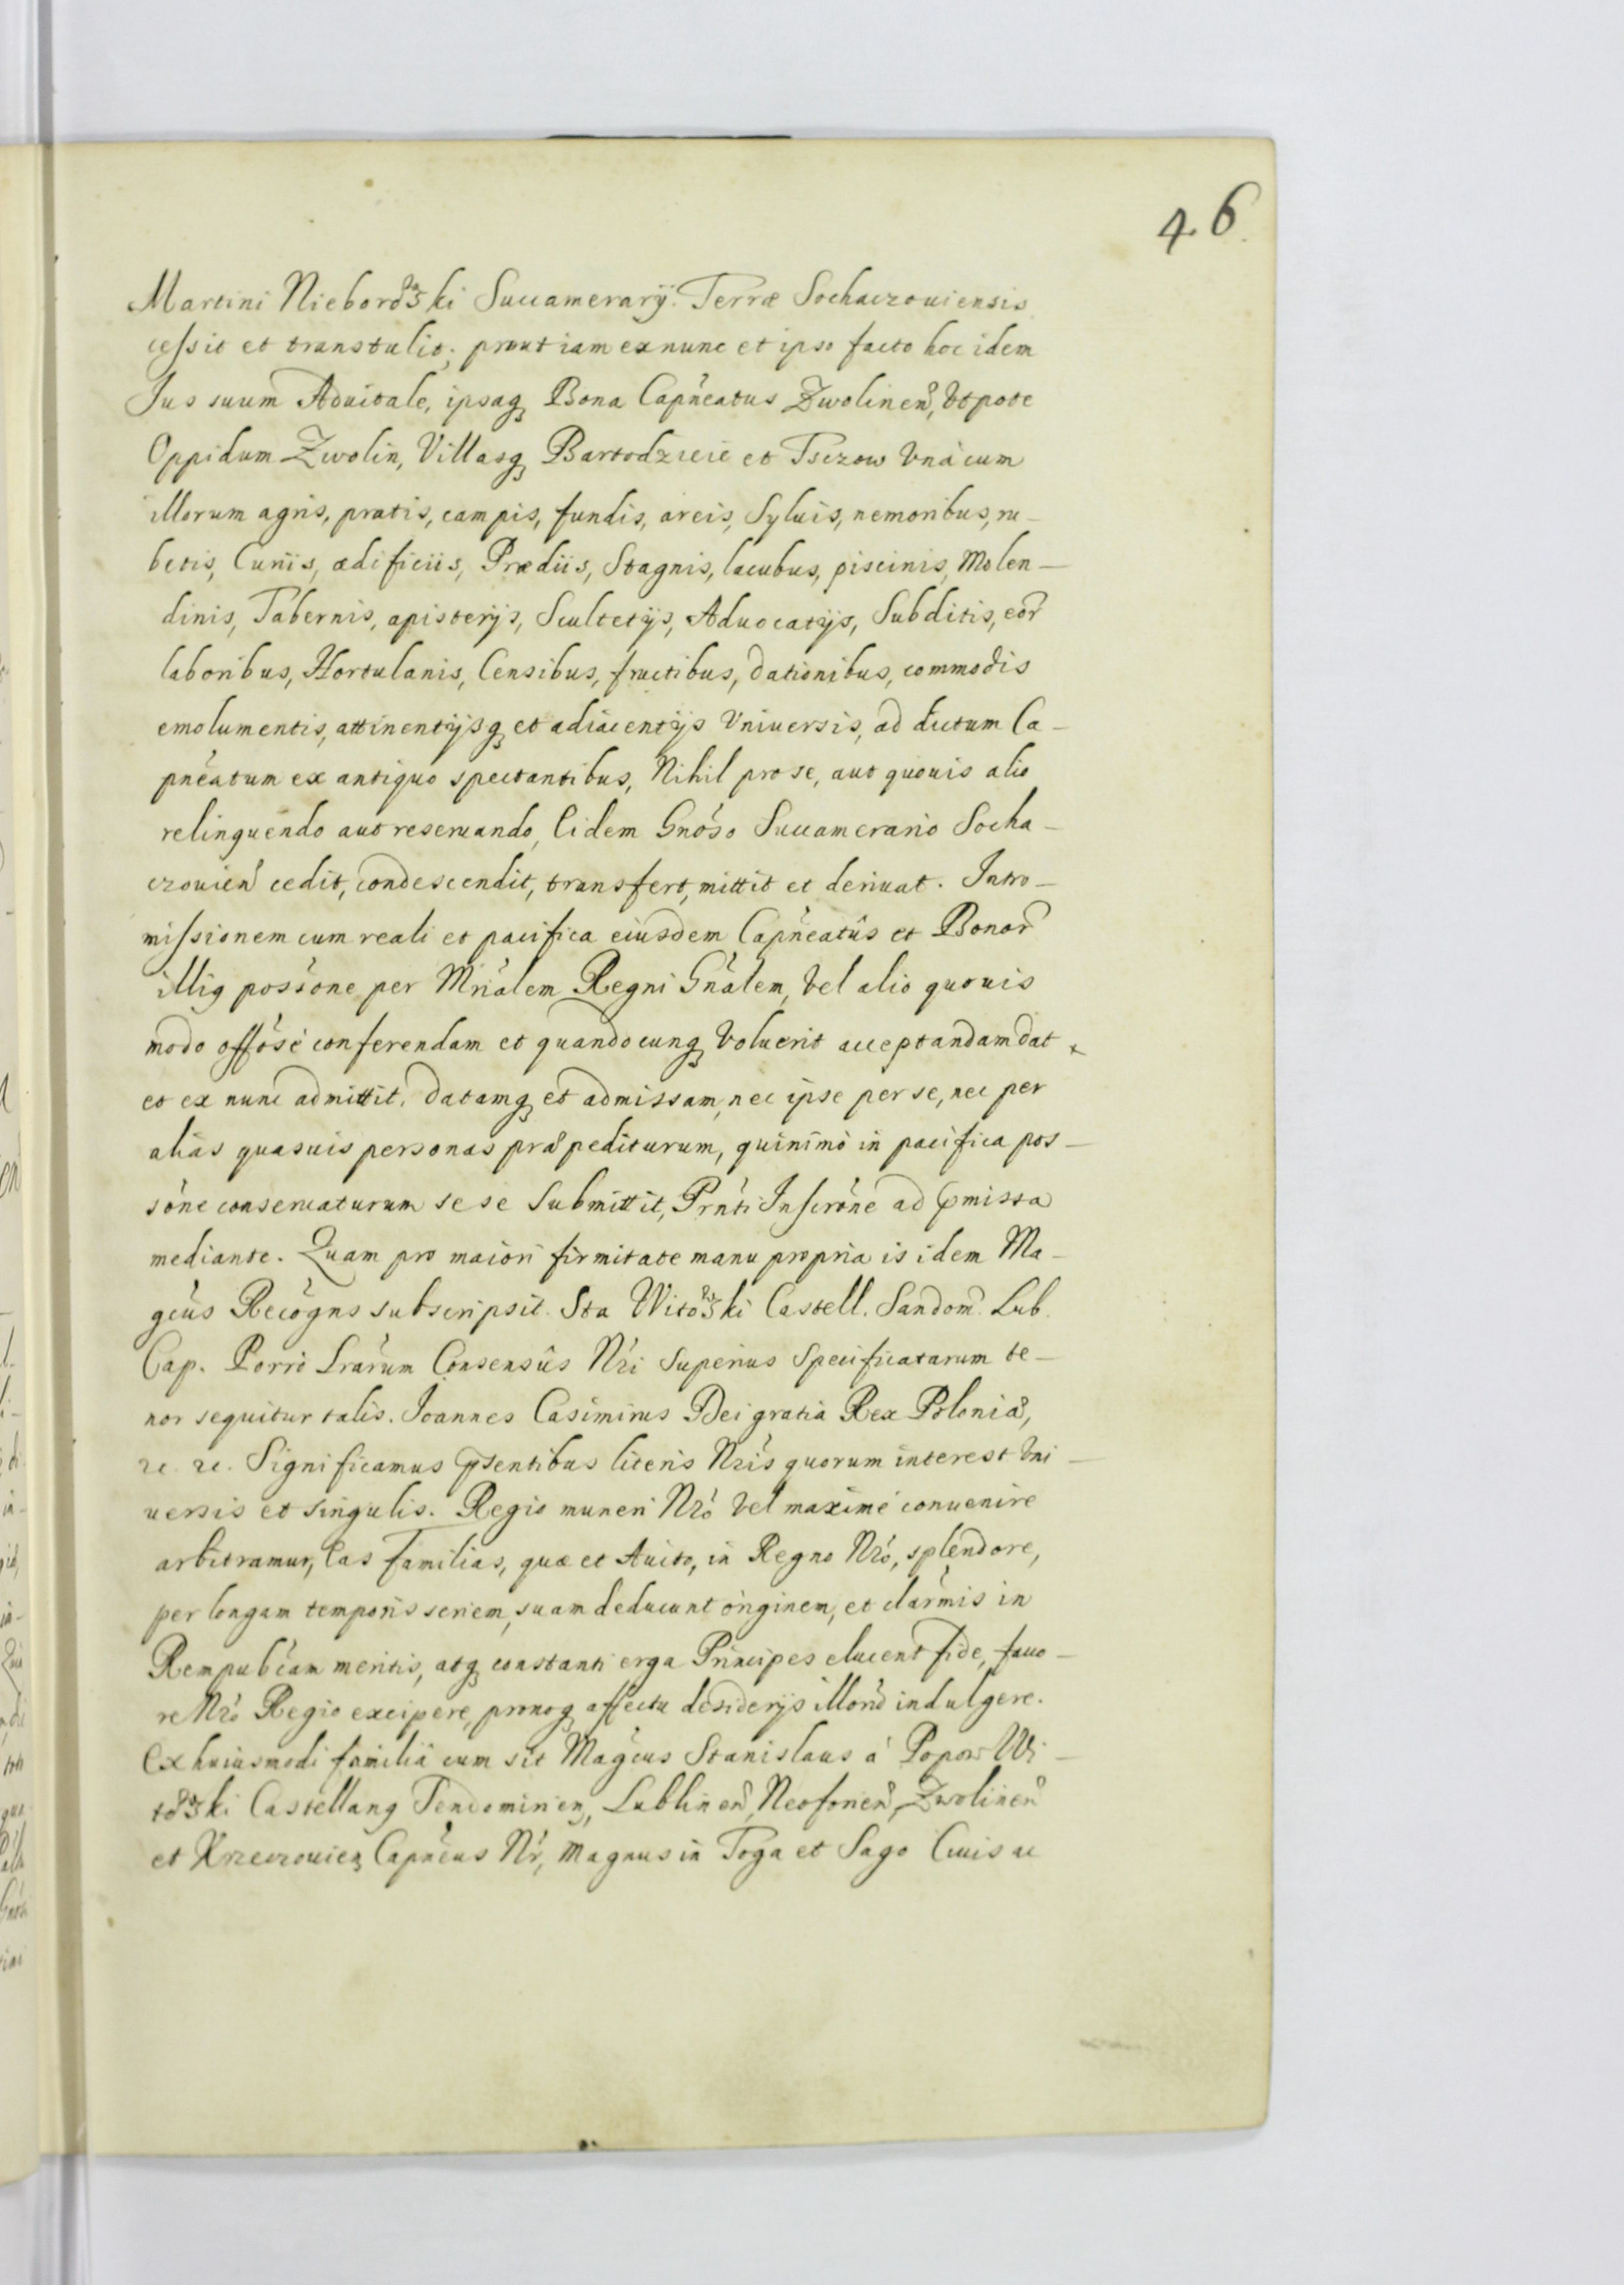 46
Martini Nieborowski Succamerarÿ Terræ Sochaczouiensis
cessit et transtulit; prout iam ex nunc et ipso facto hoc idem
Jus suum Aduitale, ipsaq3 Bona Capñeatus Zwolineñ, Vtpote
Oppidum Zwolin, Villasq3 Bartodzieie et Tsczow Vnácum
illorum agris, pratis, campis, fundis, areis, Syluis, nemoribus, ru-
betis, Curiis, ædificiis, Prædiis, Stagnis, lacubus, piscinis, Molen-
dinis, Tabernis, apisterijs, Scultetijs, Aduocatijs, Subditis, eor
laboribus, Hortulanis, Censibus, fructibus, dationibus, commodis
emolumentis, attinentijsq3 et adiacentijs Vniuersis, ad dictum Ca-
pñeatum ex antiquo spectantibus, Nihil pro se, aut quouis alio
relinquendo aut reseruando, Eidem Gnóso Succamerario Socha-
czouieñ cedit, condescendit, transfert, mittit et deriuat. Intro-
missionem cum reali et pacifica eiusdem Capñeatûs et Bonor
illiq possóne per Mriálem Regni Gnálem, Vel alio quouis
modo offósé conferendam et quandocunq3 Voluerit acceptandam dat
et ex nunc admittit, datamq3 et admissam, nec ipse per se, nec per
aliàs quasuis personas præpediturum, quinimò in pacifica pos-
sóne conseruaturum se se Submittit, Prñti Inscróne ad pmissa
mediante. Quam pro maiori firmitate manu propria is idem Ma-
gcús Recógns subscripsit. Sta Witowski Castell. Sandom. Lub.
Cap. Porrò Lrárum Consensûs Nri Superius Specificatarum te-
nor sequitur talis. Joannes Casimirus Dei gratia Rex Poloniæ,
rc. rc. Significamus psentibus literis Nris quorum interest Vni-
uersis et singulis. Regio muneri Nró Vel maximé conuenire
arbitramur, Eas familias, quæ et Auito, in Regno Nró, splendore,
per longam temporis seriem, suam deducunt originem, et clármis in
Rempubĉam meritis, atq3 constanti erga Principes elucent fide, fauo-
re Nró Regio excipere, pronoq3 affectu desiderijs illorũ indulgere.
Ex huiusmodi familiâ cum sit Magcus Stanislaus á Popow Wi-
towski Castellang Sendomirien, Lublineñ, Neoforieñ, Zwolineñ
et Krzeczouien Capñeus Nr, Magnus in Toga et Sago Ciuis ac